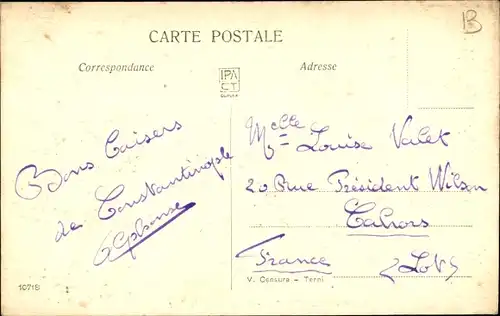 B
CARTE POSTALE
Correspondance
Adresse
IPA
CT
Bons Baisers
de Constantinople
Alphonse
Melle Louise Valet
20 Rue Président Wilson
Cahors
(Lot)
France
10718
V. Censura - Terni